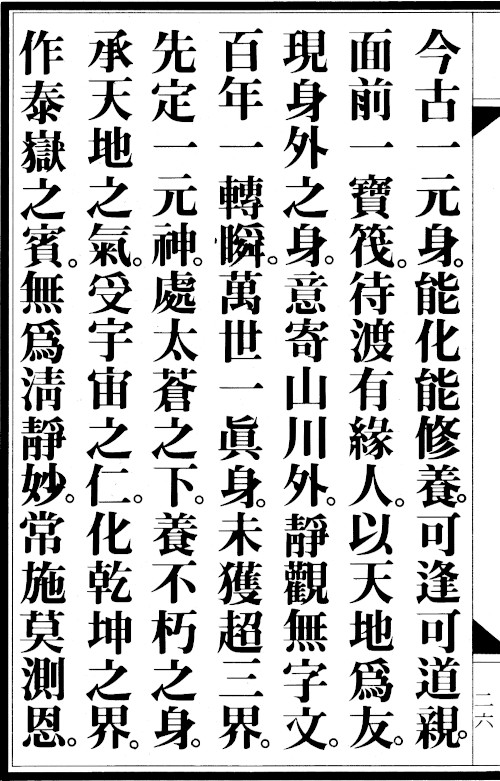 今古一元身。能化能修養。可逢可道親。
面前一寶筏。待渡有緣人。以天地爲友。
現身外之身。意寄山川外。靜觀無字文。
百年一轉瞬。萬世一眞身。未獲超三界。
先定一元神。處太蒼之下。養不朽之身。
承天地之氣。受宇宙之仁。化乾坤之界。
作泰嶽之賓。無爲淸靜妙。常施莫測恩。
二六